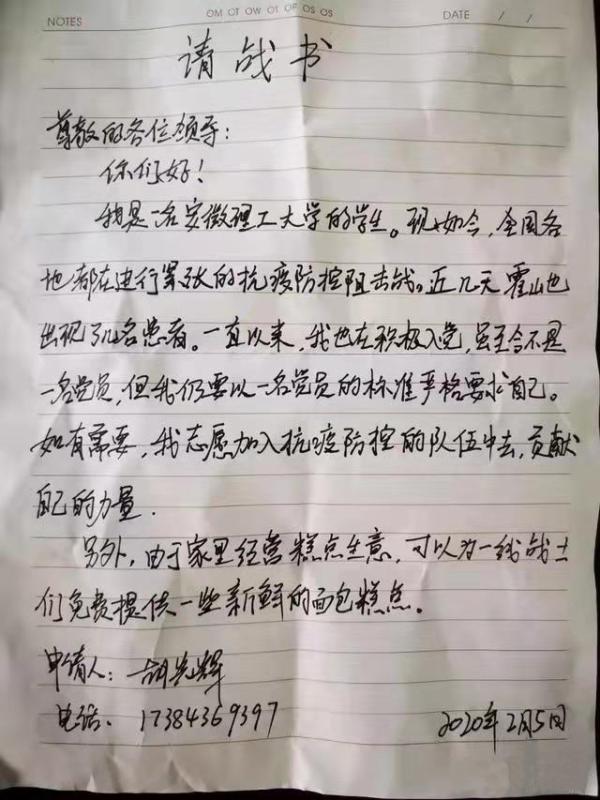 NOTES
DATE / /
请战书
尊敬的各位领导:
你们好!
我是一名安徽理工大学的学生。现如今,全国各
地都在进行紧张的抗疫防控阻击战。近几天霍山也
出现了几名患者。一直以来,我也在积极入党,虽至今不是
一名党员,但我仍要以一名党员的标准严格要求自己。
如有需要,我志愿加入抗疫防控的队伍中去,贡献
自己的力量.
另外,由于家里经营糕点生意,可以为一线战士
们免费提供一些新鲜的面包糕点。
申请人:胡先辉
电话. 17384369397
2020年2月5日